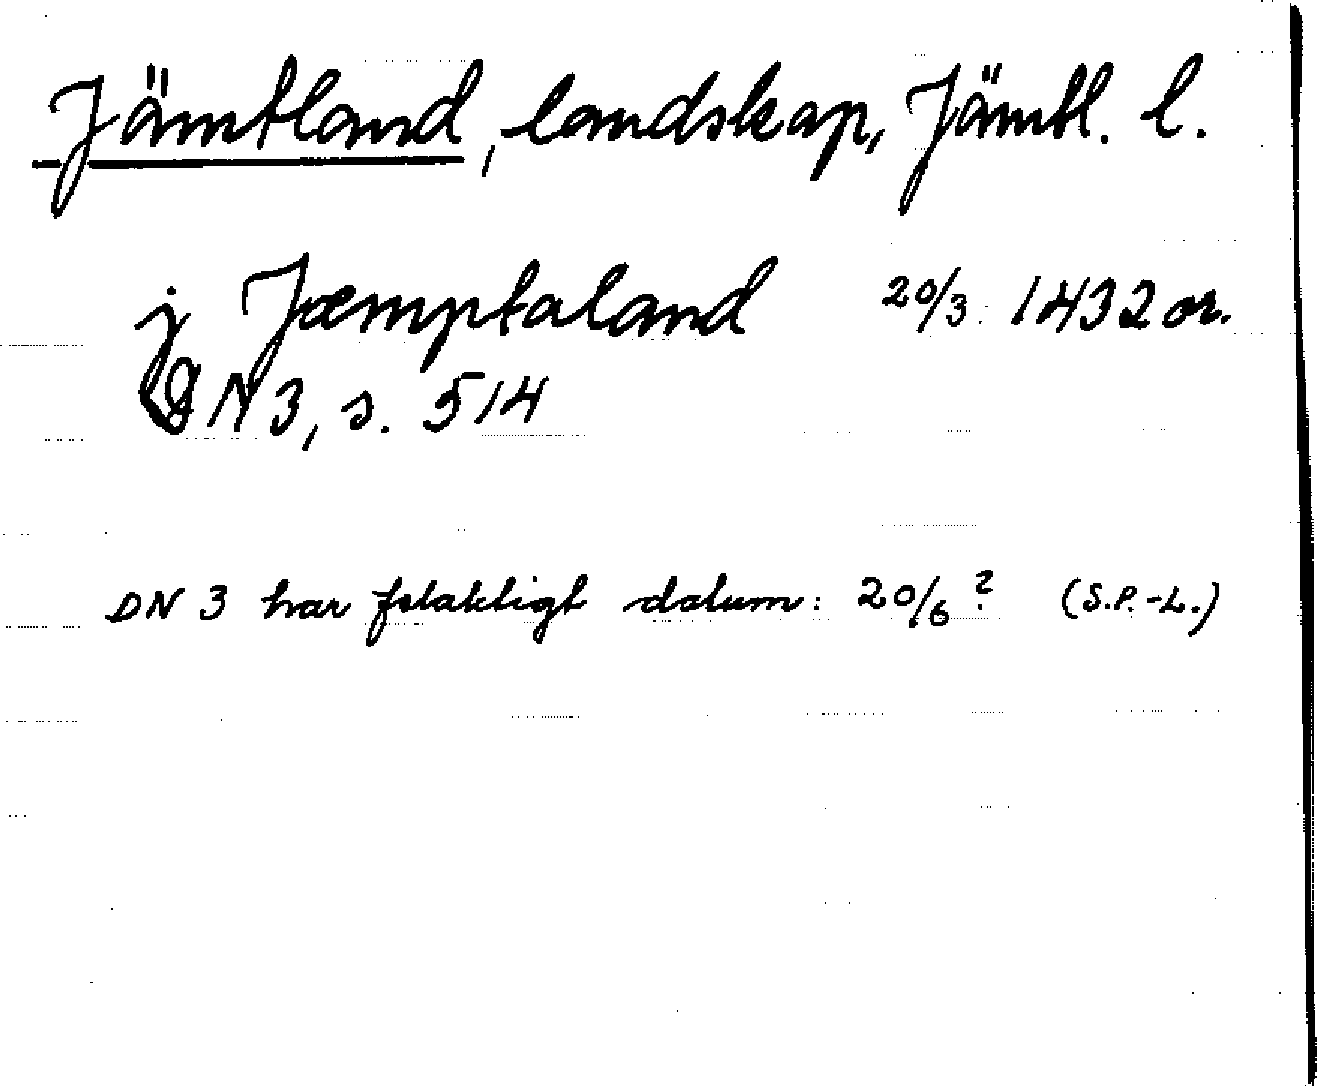 Jämtland, landskap, Jämtl. l.
j Jæmptaland 20/3 1432 or.
DN 3, s. 514
DN 3 har felaktigt datum: 20/6 ? (S.P.-L.)